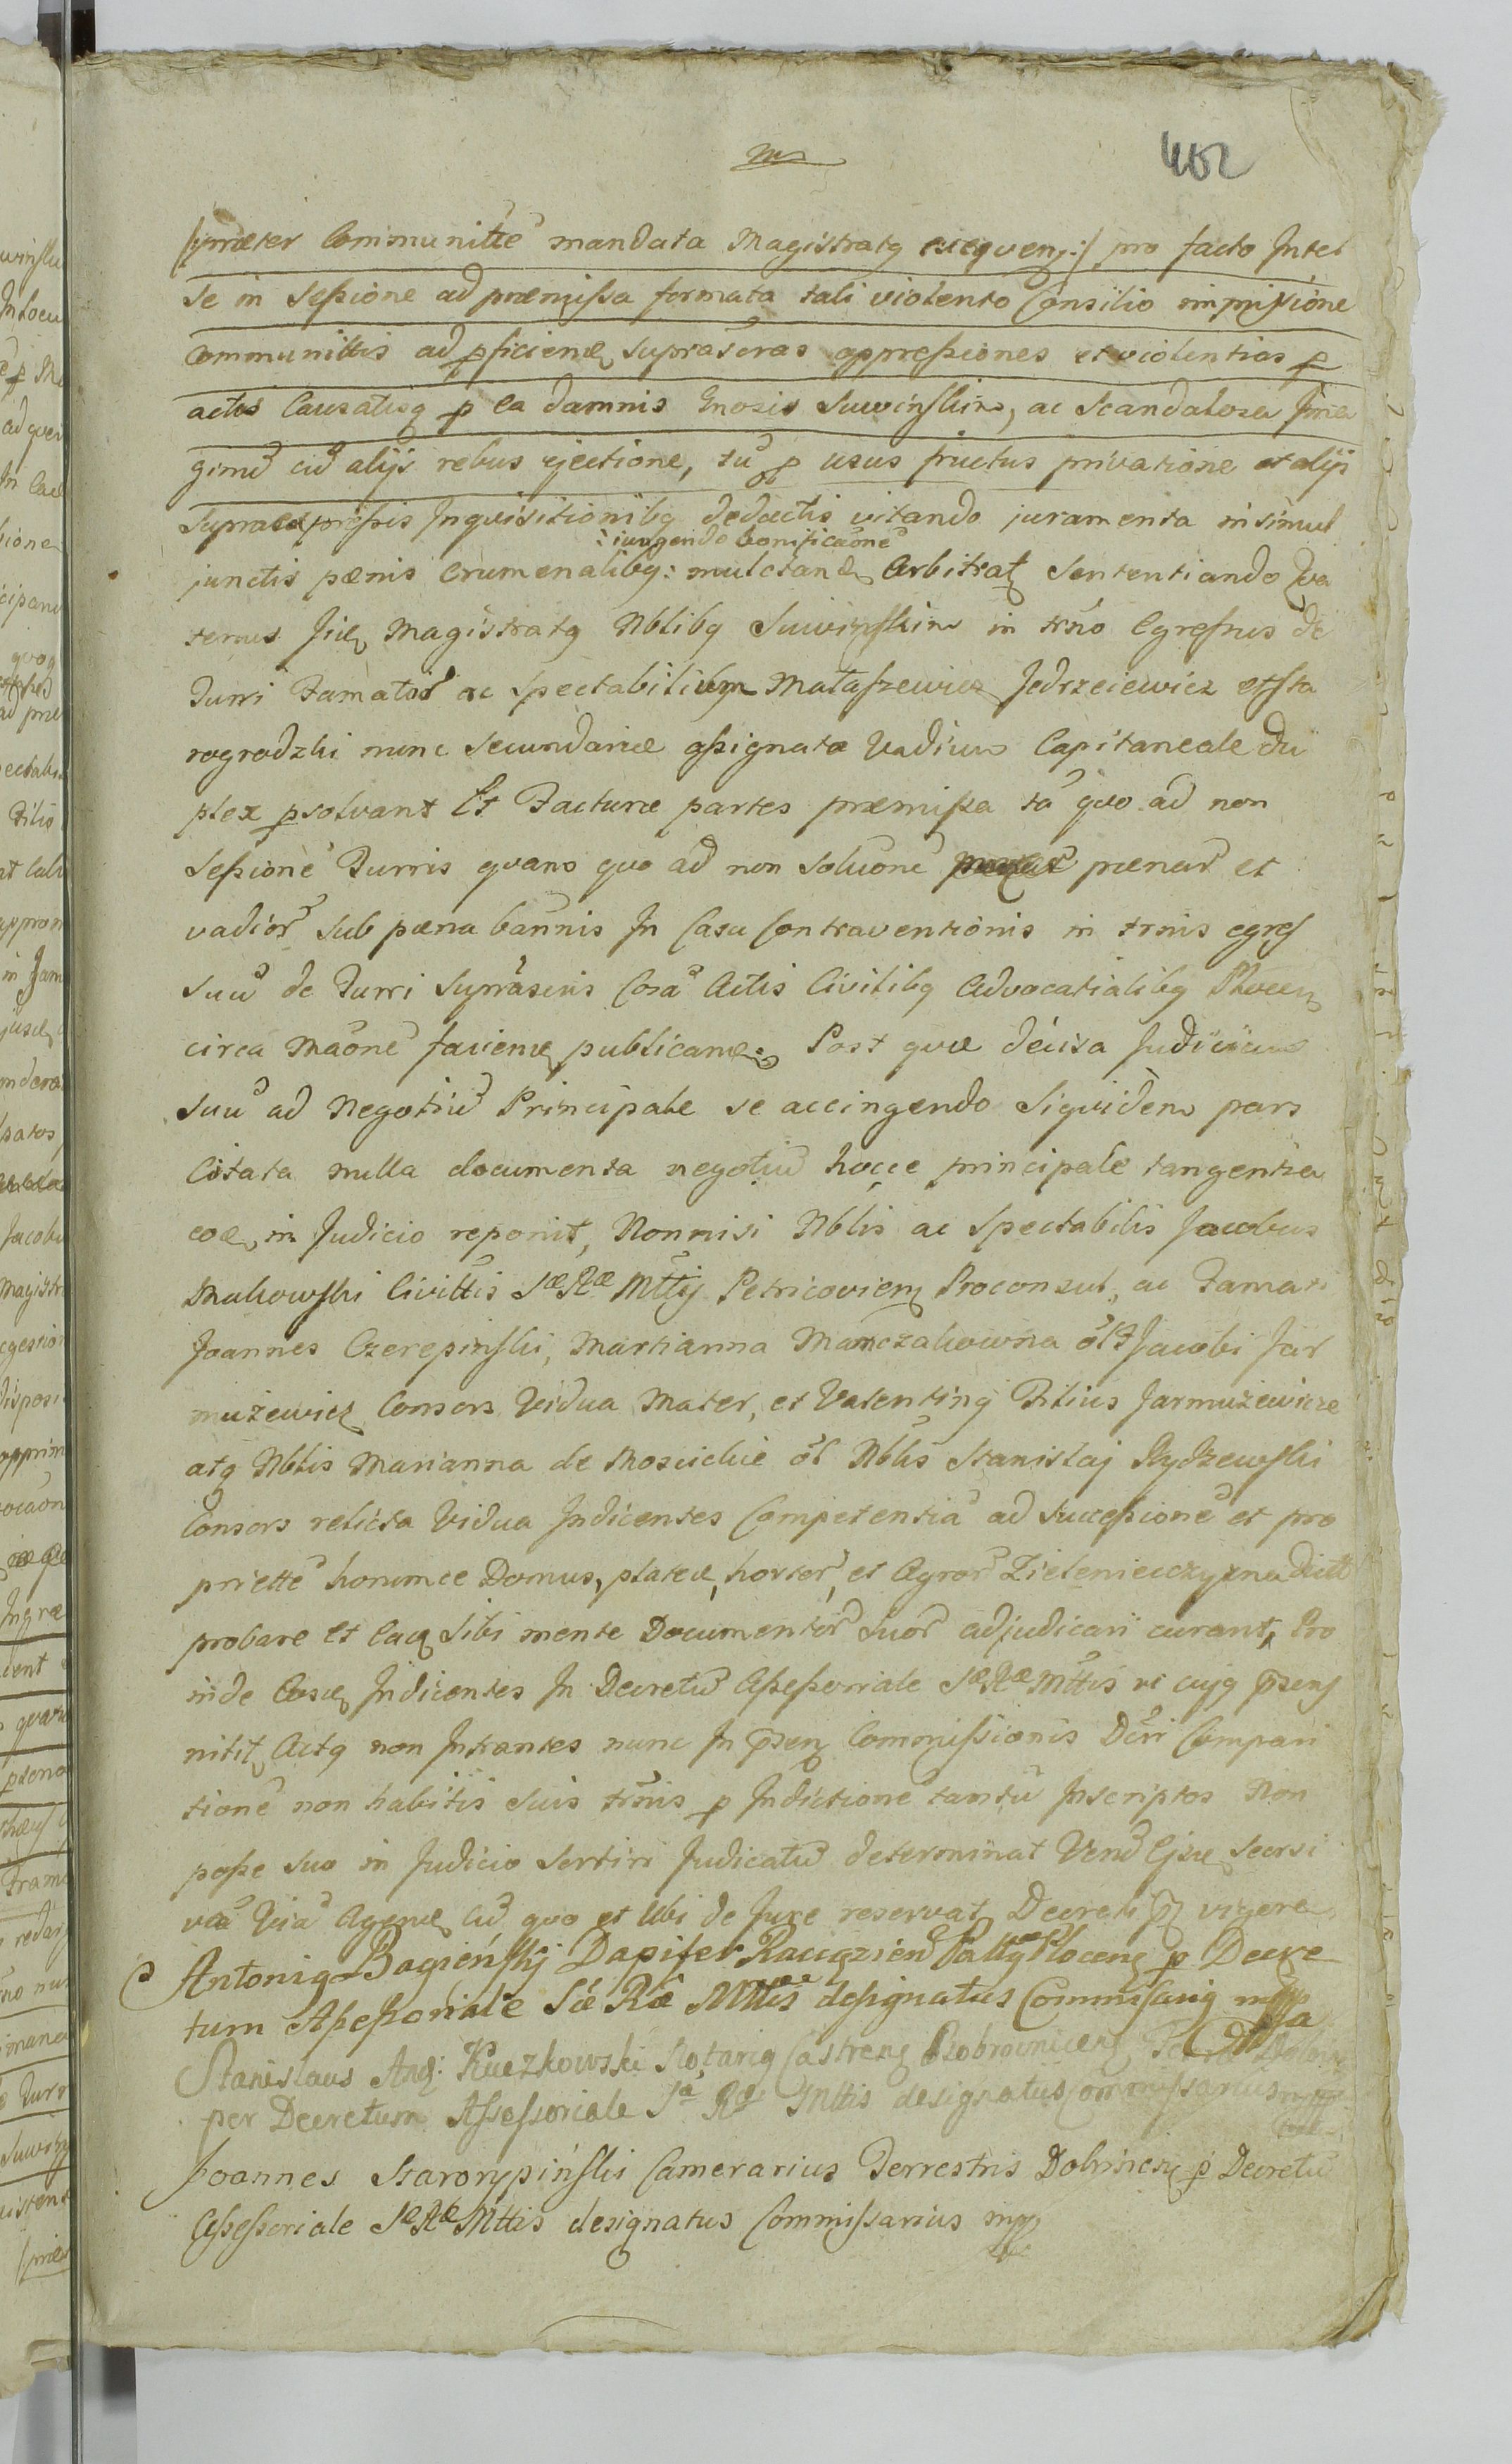 402
/:præter Communitte mandata Magistratq exequen:/ pro facto Inter
se in Sessione ad præmissa formata tali violento Consilio immissione
Communittis ad pficiend suprascras oppressiones et violentias p
actos Causatisq p ea damnis Gnosis Suwinskim, ac Scandalosa Ima
ginu cu alijs rebus ejectione, tu p usus fructus privatione et alijs
Supraexpressis Inqvisitionibq deductis vitando juramenta insimul
:iungendo bonificaone
junctis pænis Crumenalibq: mulctand Arbitrat Sententiando
Magistratq Nblibq Suwinskim in trno Egressus de
Turri Famatos ac Spectabilium Mataszewicz Jedrzeiewicz et Sta
rogrodzki nunc Secundarie assignatæ Vadium Capitaneale du
plex psolvant Et Facturæ partes præmissa ta qvo ad non
Sessione Turris qvam qvo ad non Soluone pœnar et
vadior sub pœna bannis In Casu Contraventionis in trnis egres
suu de Turri Suprascris Cora Actis Civilibq Advocatialibq
circa Maone faciend publicand. Post qvæ decisa Judicium
suu ad Negotiu Principale se accingendo Siqvidem pars
Citata nulla documenta negotiu hocce principale tangentia
coe in Judicio reponit, Nonnisi Nblis ac Spectabilis Jacobus
Makowski Civittis SæRæ Mttis Petricovien Proconsul, ac Famati
Joannes Czerepinski, Martianna Manczakowna ol Jacobi Jar
mużewicz Consors Vidua Mater, et Valentinq Filius Jarmużewicze
atq Nblis Marianna de Moscickie ol Nblis Stanislaj Rydzewski
Consors relicta Vidua Indicentes Competentia ad Successione et pro
priette horumce Domus, plateæ, hortor, et Agror Zieleniewczyzna dict
probare Et Eaq Sibi mente Documentor Suor adjudicari curant, Pro
inde Indicentes In Decretu Assessoriale SæRæ Mttis vi cujq præsens
nitit Actq non Intrantes nunc In præsen Commissionis Dcri Compari
tione non habitis suis trnis p Indictione tantu Inscriptos Non
posse suo in Judicio Sortiri Judicatu determinat Veru
Via Agend Cu quo et Ubi de Jure reservat Decreti vigore
Antoniq Bagieński Dapifer Raciązien Palttq Plocens p Decre
tum Assessoriale Sæ Ræ Mttis designatus Commissariq mppa
Stanislaus And: Kuczkowski Notariq Castrens Bobrownicens
per Decretum Assessoriale Sæ Ræ Mttis designatus Commissarius mpp
Joannes Starorypiński Camerarius Terrestris Dobrinen p Decretu
Assessoriale SæRæ Mttis designatus Commissarius mpp